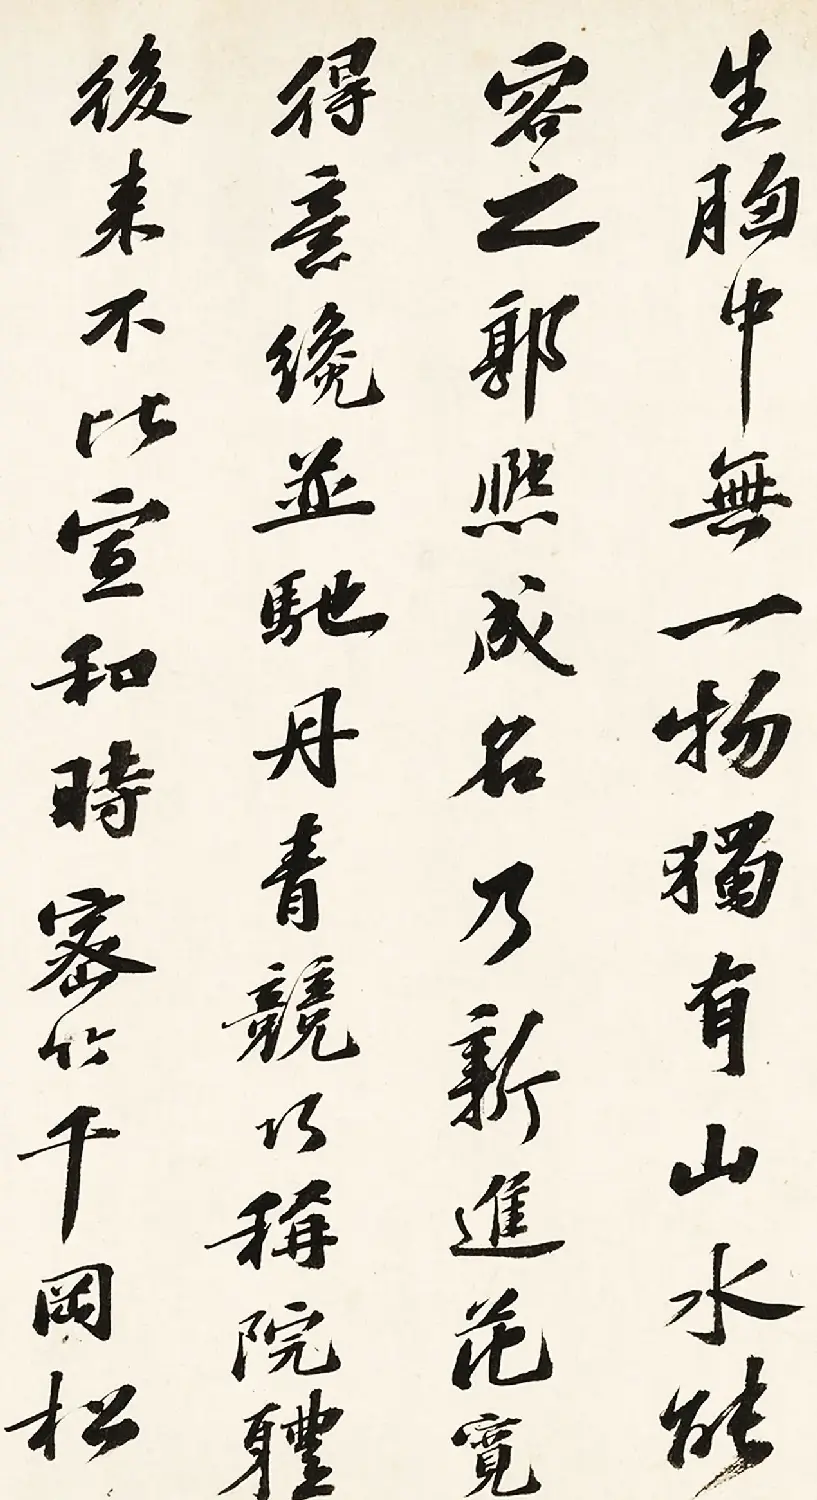 生胸中無一物獨有山水能
容之郭熙成名乃新進花寬
得意纔並馳丹青競巧稱院軆
後来不比宣和時密竹千岡松